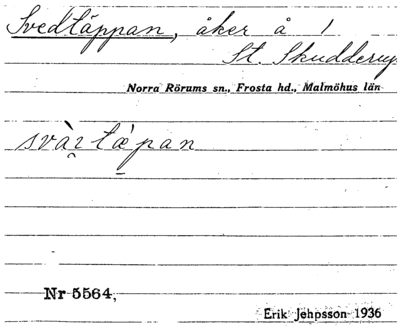 Svedtäppan, åker å 1
St. Skudderup
Norra Rörums sn., Frosta hd., Malmöhus län
Nr 5564,
Erik Jehpsson 1936